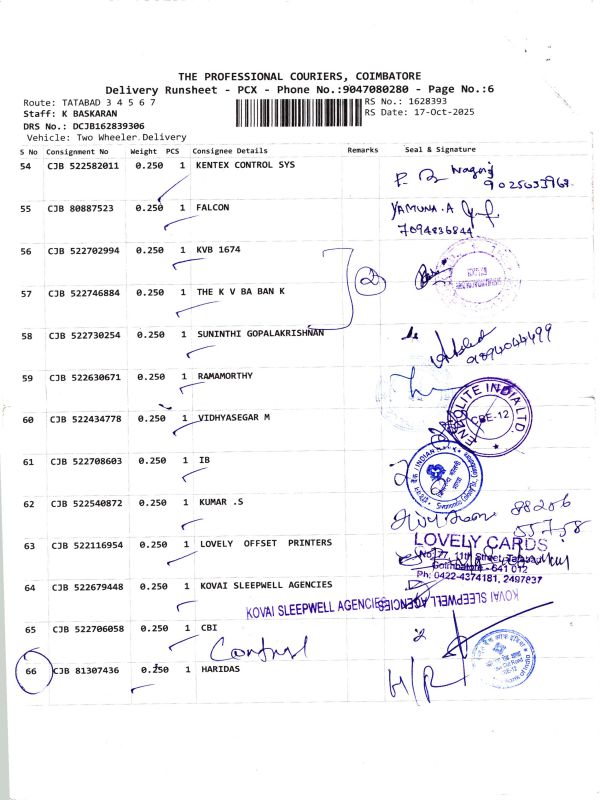 THE PROFESSIONAL COURIERS, COIMBATORE
Delivery Runsheet - PCX - Phone No.:9047080280 - Page No.:6
Route: TATABAD 3 4 5 6 7
RS No.: 1628393
Staff: K BASKARAN
RS Date: 17-Oct-2025
DRS No.: DCJB162839306
Vehicle: Two Wheeler Delivery
S No Consignment No Weight PCS Consignee Details Remarks Seal & Signature
54 CJB 522582011 0.250 1 KENTEX CONTROL SYS
55 CJB 80887523 0.250 1 FALCON YAMUNA.A
7094836844
56 CJB 522702994 0.250 1 KVB 1674
2
57 CJB 522746884 0.250 1 THE K V BA BAN K
58 CJB 522730254 0.250 1 SUNINTHI GOPALAKRISHNAN
59 CJB 522630671 0.250 1 RAMAMORTHY
60 CJB 522434778 0.250 1 VIDHYASEGAR M
INDIA LTD.
CBE-12
61 CJB 522708603 0.250 1 IB
INDIAN
62 CJB 522540872 0.250 1 KUMAR .S
88206
55758
63 CJB 522116954 0.250 1 LOVELY OFFSET PRINTERS
LOVELY CARDS
No. 77, 11th Street, Tatabad
Coimbatore - 641 012
Ph: 0422-4374181, 2497837
64 CJB 522679448 0.250 1 KOVAI SLEEPWELL AGENCIES
KOVAI SLEEPWELL AGENCIES
KOVAI SLEEPWELL AGENCIES
65 CJB 522706058 0.250 1 CBI
2
66 CJB 81307436 0.250 1 HARIDAS
H/R